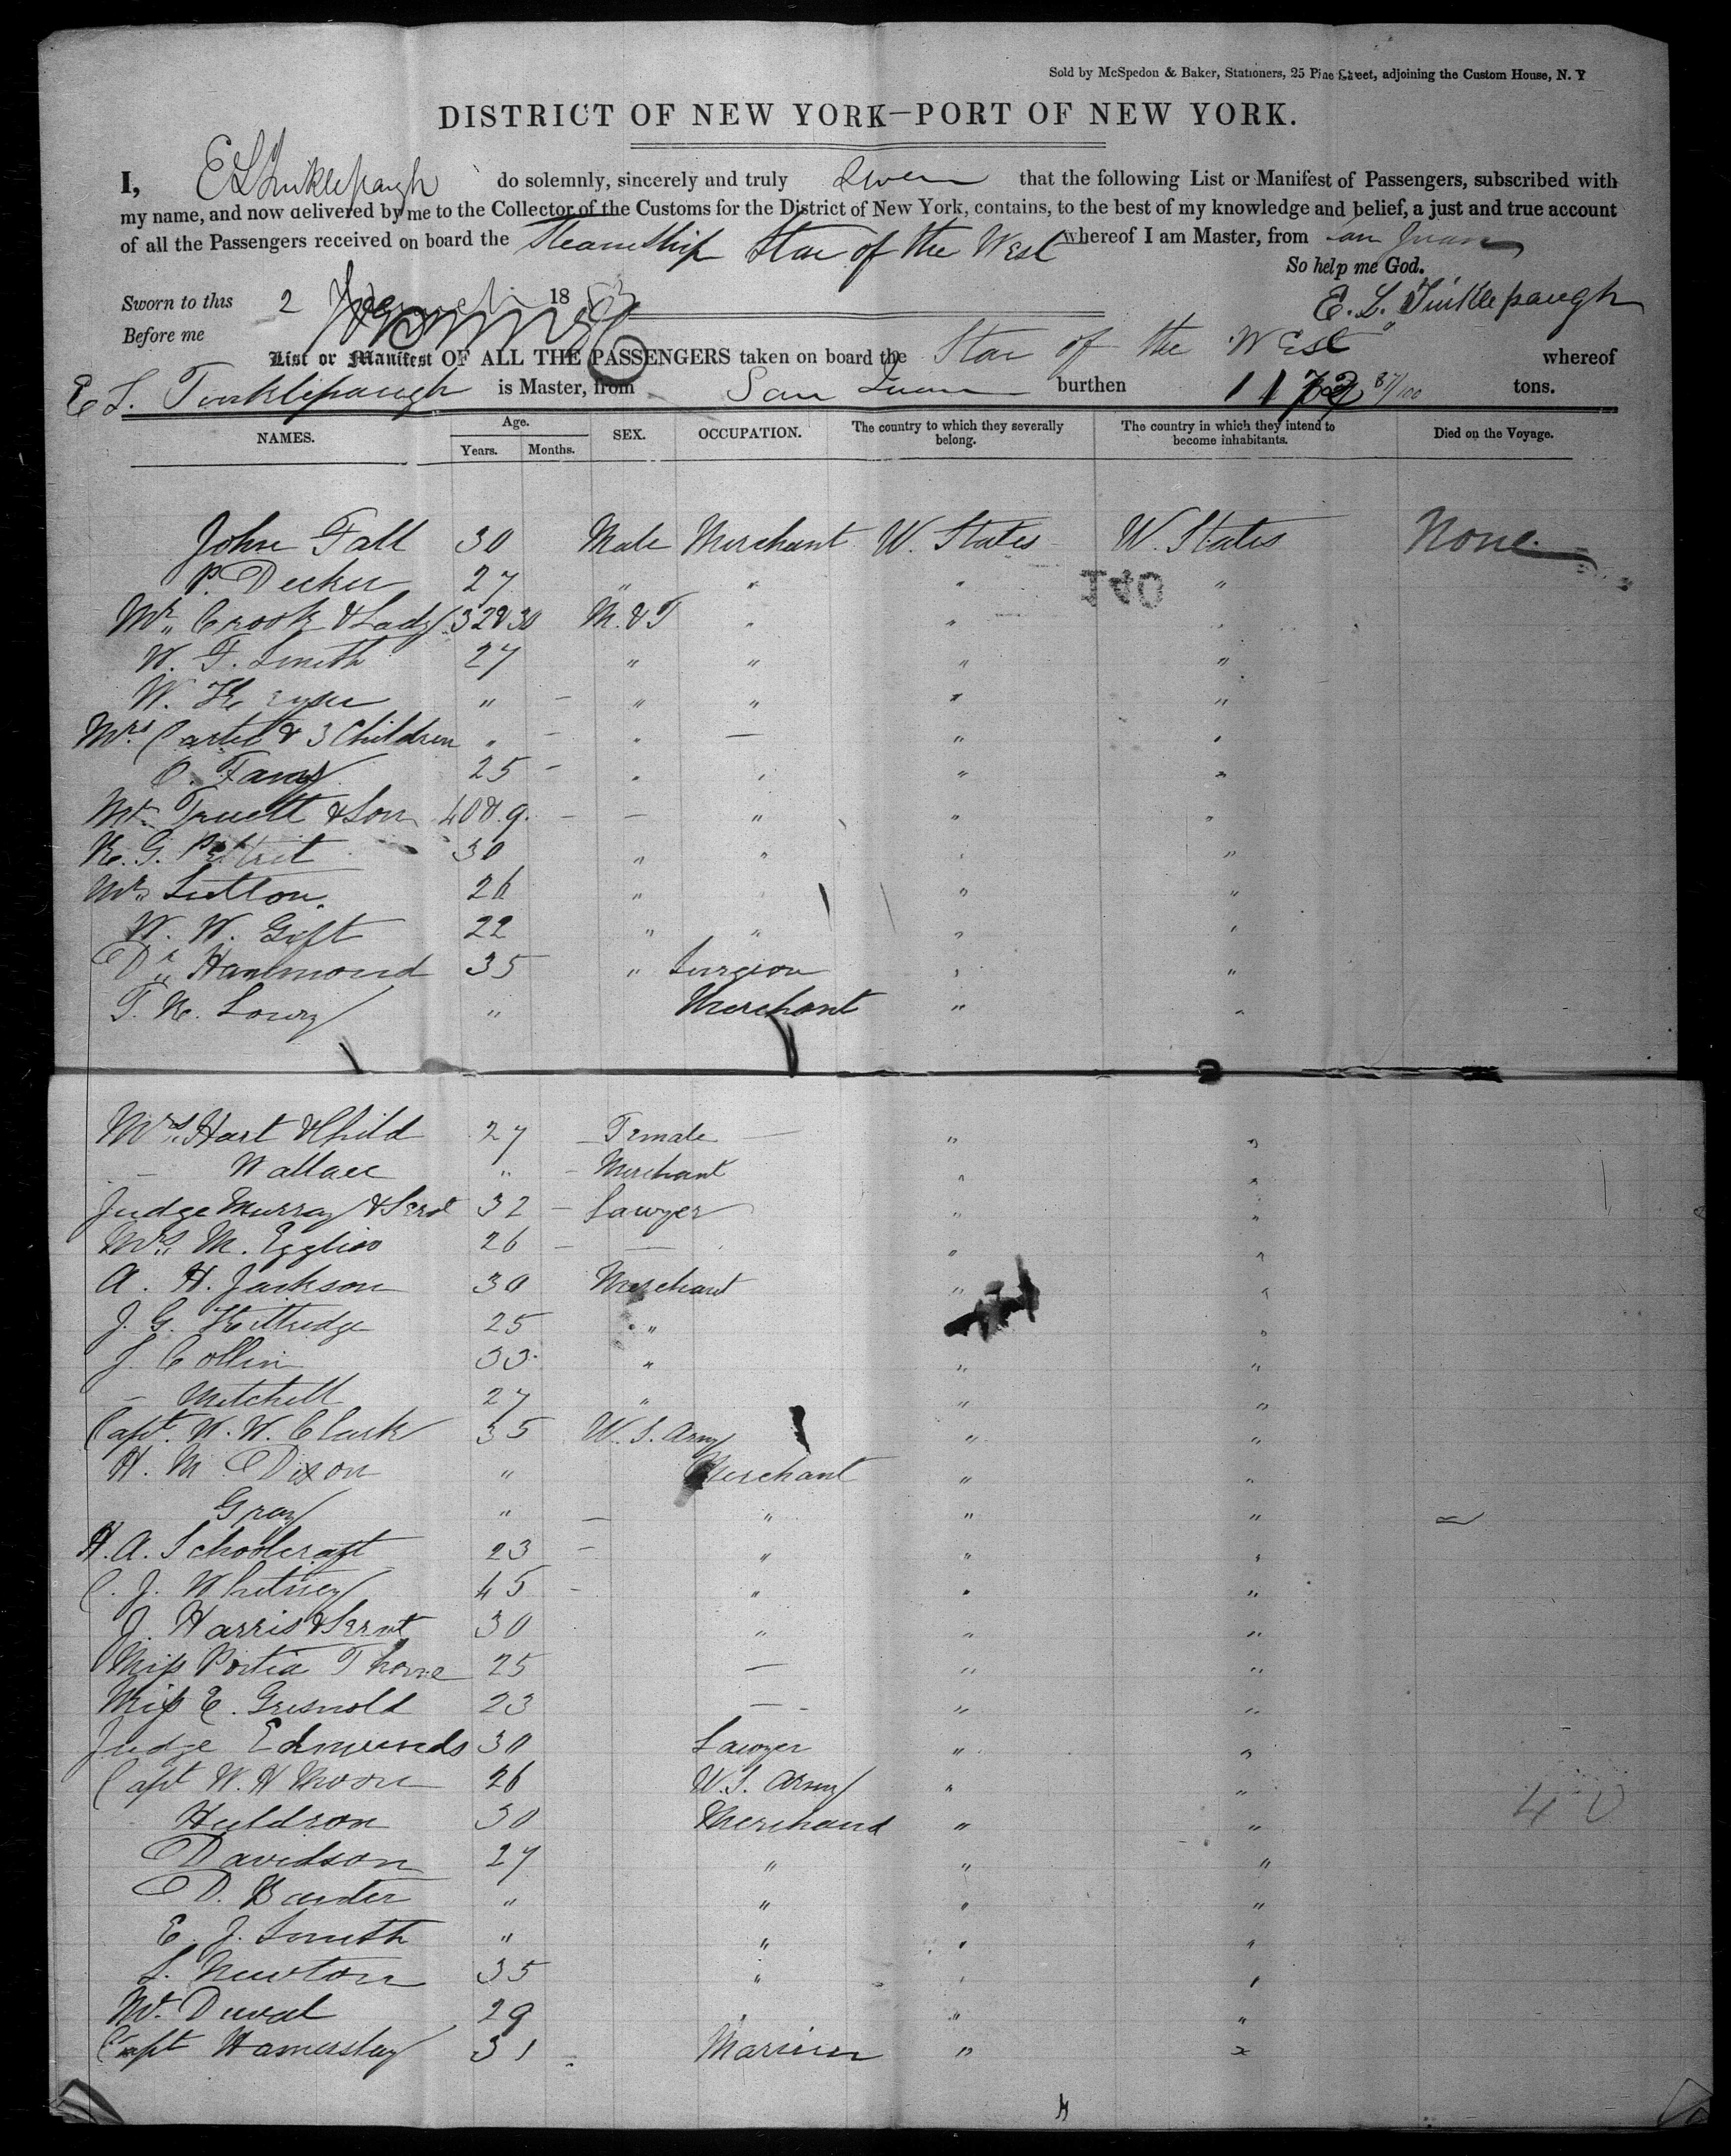 Sold by McSpedon & Baker, Stationers, 25 Pine Street, adjoining the Custom House, N. Y
DISTRICT OF NEW YORK—PORT OF NEW YORK.
I, E L Tinklepaugh do solemnly, sincerely and truly swear that the following List or Manifest of Passengers, subscribed with
my name, and now delivered by me to the Collector of the Customs for the District of New York, contains, to the best of my knowledge and belief, a just and true account
of all the Passengers received on board the Steam Ship Star of the West whereof I am Master, from San Juan
So help me God.
Sworn to this 2 18 53 E. L. Tinklepaugh
Before me
List or Manifest OF ALL THE PASSENGERS taken on board the Star of the West whereof
E L. Tinklepaugh is Master, from San Juan burthen 1172 87/100 tons.
NAMES. Age. Years. Months. SEX. OCCUPATION. The country to which they severally belong. The country in which they intend to become inhabitants. Died on the Voyage.
John Fall 30 Male Merchant U. States U. States None
P. Decker 27 " " " "
140
Mr. Crook & Lady 32 & 30 M. & F " " "
W. F. Smith 27 " " " "
W. " - " " " "
Mrs. Carter & 3 Children " - " — " "
O. 25 - " " " "
Mr. Truett & Son 40 & 9. - — " " "
R. G. 30 " " " "
Mr. Sutton. 26 " " "
W. W. Gift 22 " " " "
Dr. Hammond 35 " Surgeon " "
T. R. Lowry " Merchant " "
Mrs. Hart & Child 27 — Female — " "
— Wallace " - Merchant " "
Judge Murray & Servt 32 - Lawyer " "
Mrs. M. 26 - — " "
A. H. Jackson 30 Merchant " "
J. G. Kittredge 25 " " "
J. Collin 33 " " "
— Mitchell 27 " " "
Capt. W. W. Clark 35 U. S. Army " "
H. M. Dixon " Merchant " "
Gray " — " " "
H. A. Schoolcraft 23 - " " "
C. J. Whitney 45 - " " "
J. Harris & Servt 30 " " "
Miss Portia Thorne 25 — " "
Miss E. Griswold 23 — " "
Judge Edmunds 30 Lawyer " "
Capt W. H Moore 26 U. S. Army " "
Huldron 30 Merchand " "
40
Davidson 27 " " "
D. " " " "
E. J. Smith " " " "
S. Newton 35 " " "
Mr. Duval 29 " " "
Capt Hamersley 31 Mariner " "